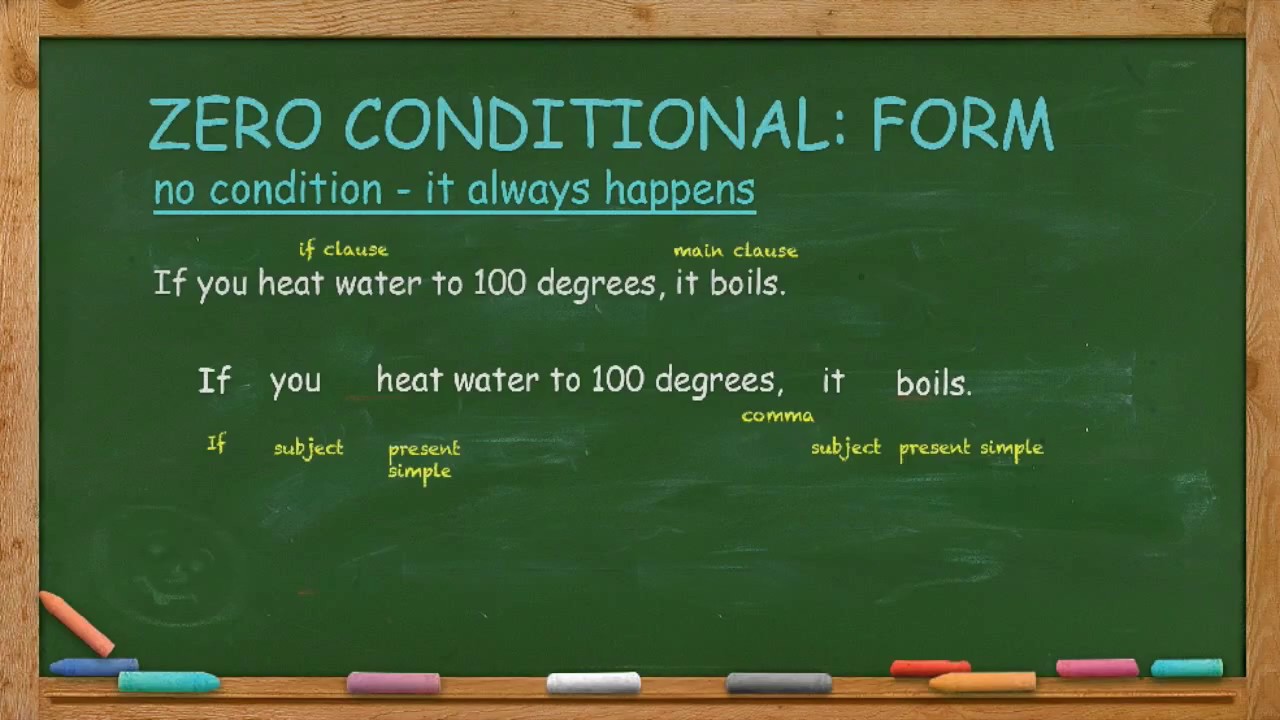 ZERO CONDITIONAL: FORM
no condition - it always happens
if clause main clause
If you heat water to 100 degrees, it boils.
If you heat water to 100 degrees, it boils.
comma
If subject present simple subject present simple